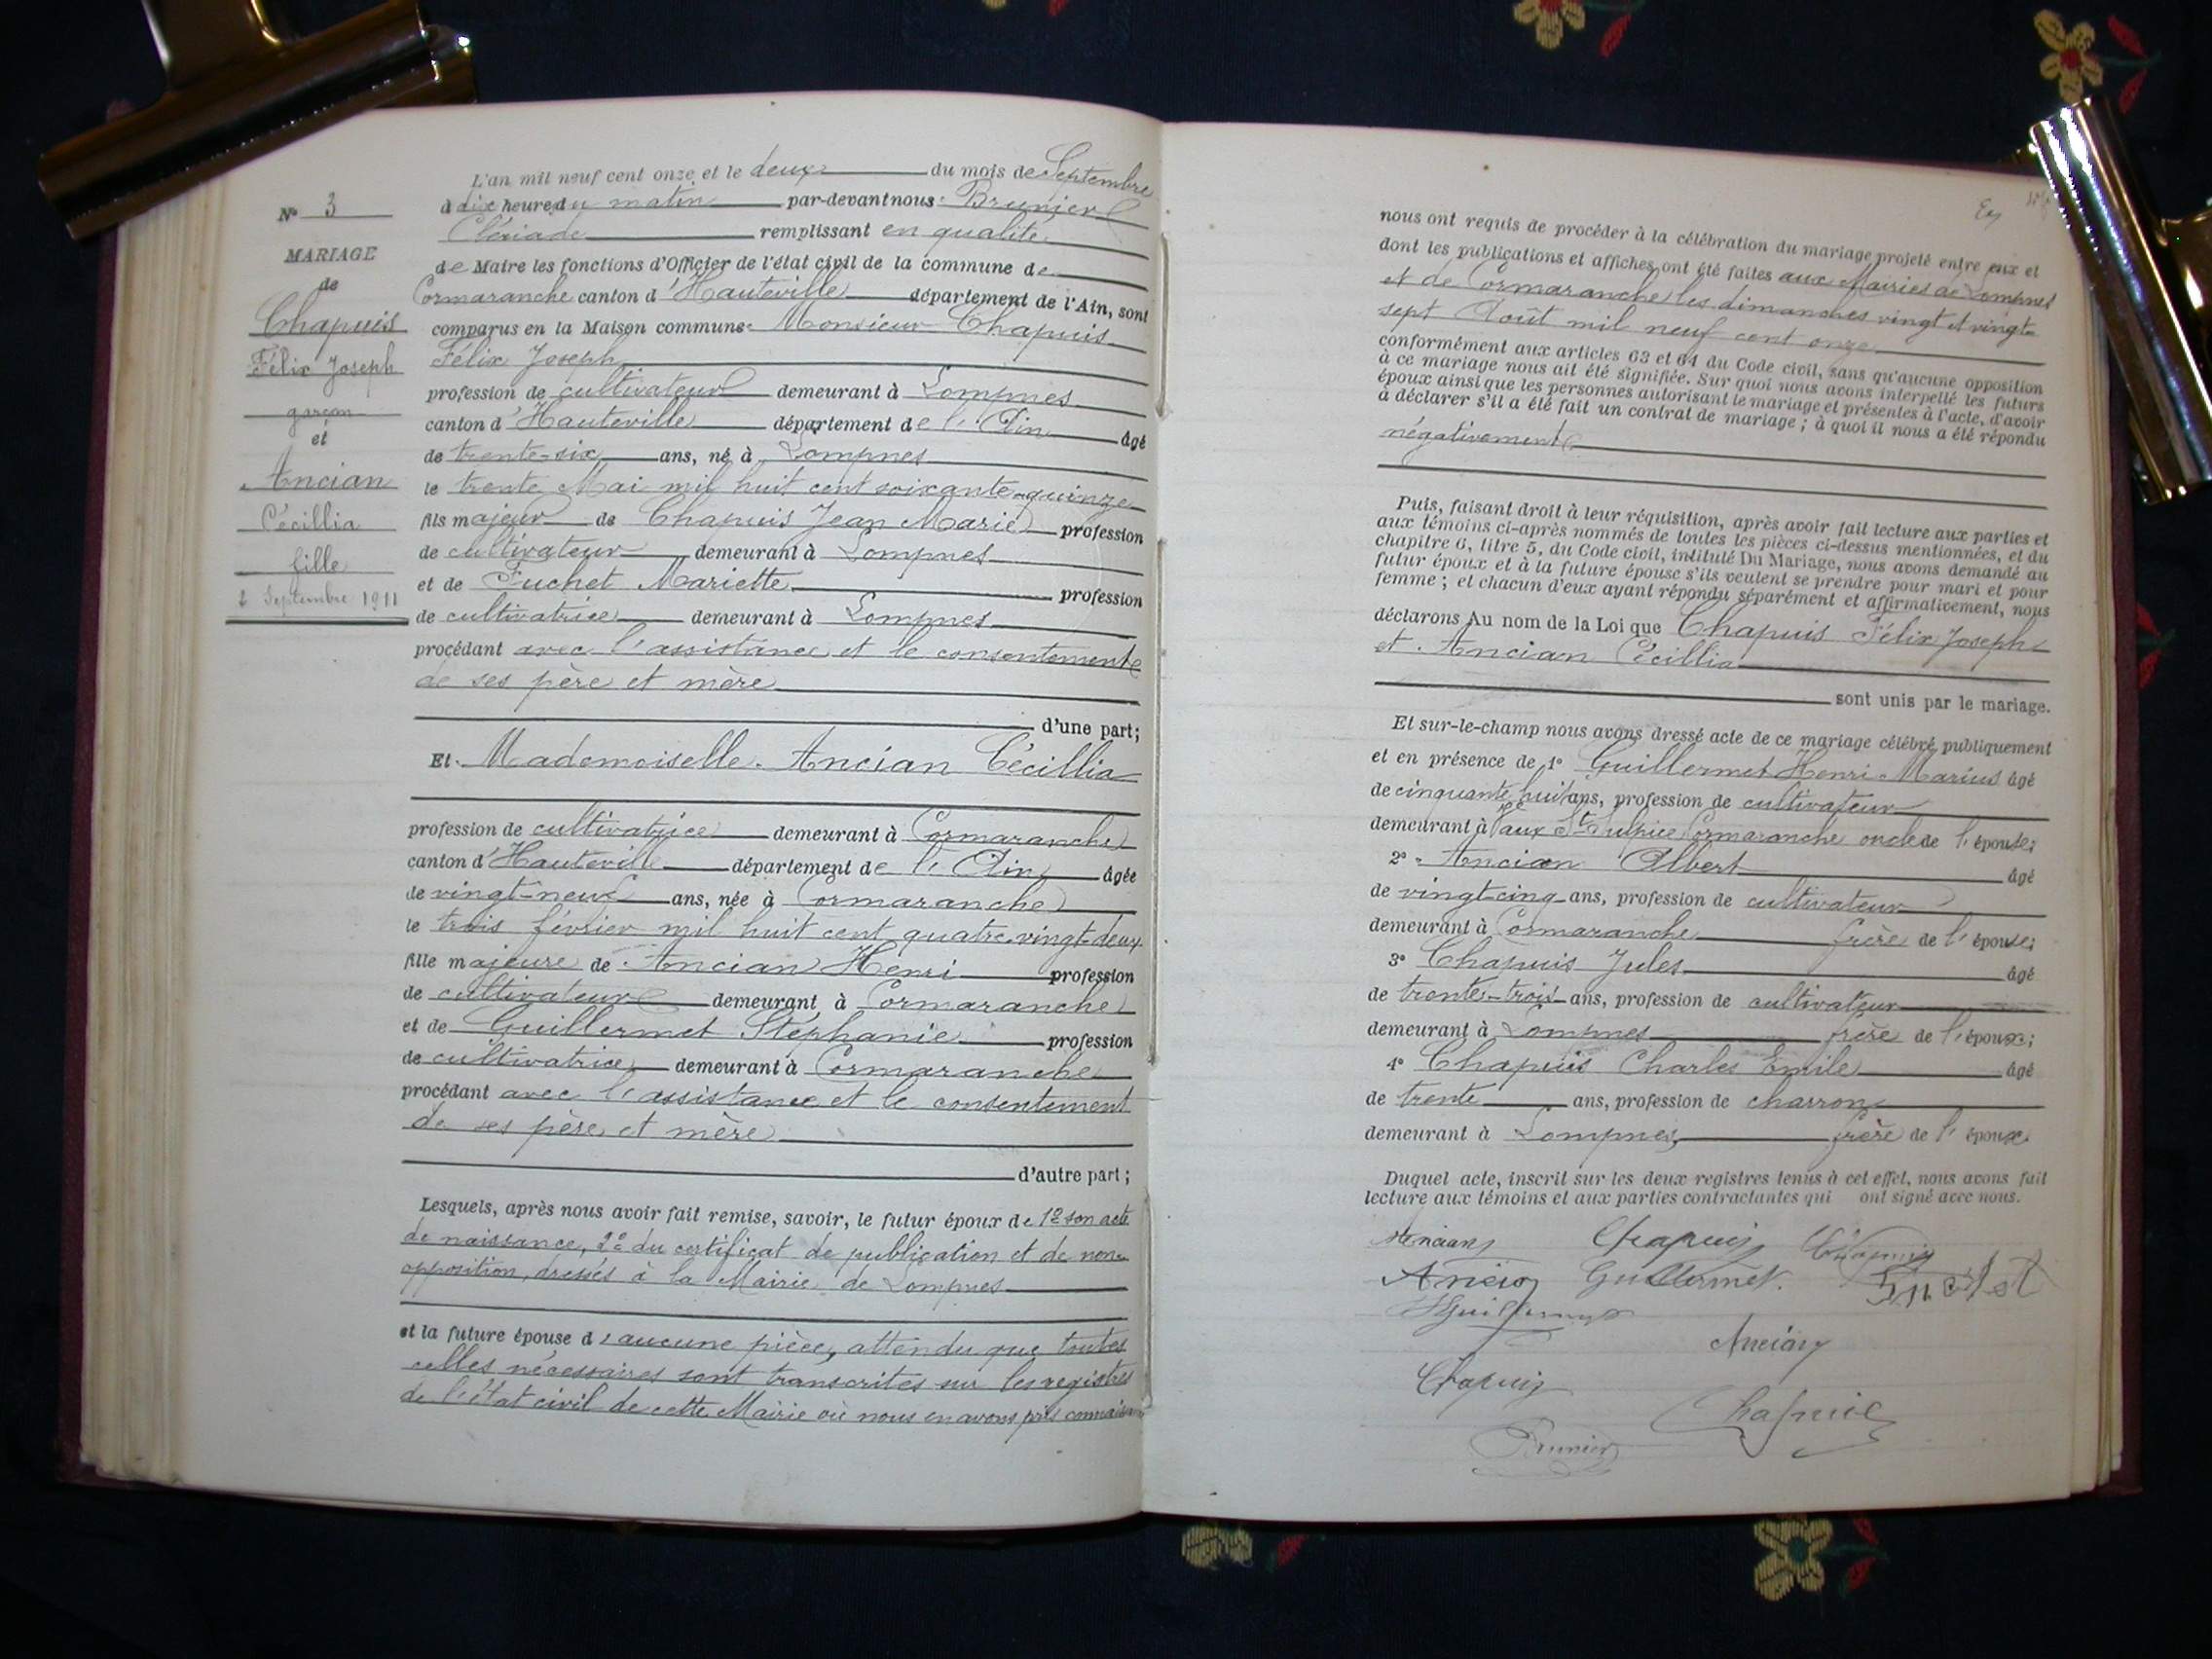 N° 3
MARIAGE
de
Chapuis
Félix Joseph
garçon
et
Ancian
Cécillia
fille
2 Septembre 1911
L'an mil neuf cent onze et le deux du mois de Septembre
à dix heures du matin par-devant nous Brunier
Clériade remplissant en qualité
de Maire les fonctions d'Officier de l'état civil de la commune de
Cormaranche canton d'Hauteville département de l'Ain, sont
comparus en la Maison commune Monsieur Chapuis
Félix Joseph
profession de cultivateur demeurant à Lompnes
canton d'Hauteville département de l'Ain âgé
de trente-six ans, né à Lompnes
le trente Mai mil huit cent soixante-quinze
fils majeur de Chapuis Jean Marie profession
de cultivateur demeurant à Lompnes
et de Fuchet Mariette profession
de cultivatrice demeurant à Lompnes
procédant avec l'assistance et le consentement
de ses père et mère
d'une part;
Et Mademoiselle Ancian Cécillia
profession de cultivatrice demeurant à Cormaranche
canton d'Hauteville département de l'Ain âgée
de vingt-neuf ans, née à Cormaranche
le trois février mil huit cent quatre-vingt-deux
fille majeure de Ancian Henri profession
de cultivateur demeurant à Cormaranche
et de Guillermet Stéphanie profession
de cultivatrice demeurant à Cormaranche
procédant avec l'assistance et le consentement
de ses père et mère
d'autre part;
Lesquels, après nous avoir fait remise, savoir, le futur époux de 1° son acte
de naissance, 2° du certificat de publication et de non
opposition, dressés à la Mairie de Lompnes
et la future épouse d'aucune pièce, attendu que toutes
celles nécessaires sont transcrites sur les registres
de l'état civil de cette Mairie où nous en avons pris connaissance
nous ont requis de procéder à la célébration du mariage projeté entre eux et
dont les publications et affiches ont été faites aux Mairies de Lompnes
et de Cormaranche les dimanches vingt et vingt
sept Août mil neuf cent onze
conformément aux articles 63 et 64 du Code civil, sans qu'aucune opposition
à ce mariage nous ait été signifiée. Sur quoi nous avons interpellé les futurs
époux ainsi que les personnes autorisant le mariage et présentes à l'acte, d'avoir
à déclarer s'il a été fait un contrat de mariage; à quoi il nous a été répondu
négativement
Puis, faisant droit à leur réquisition, après avoir fait lecture aux parties et
aux témoins ci-après nommés de toutes les pièces ci-dessus mentionnées, et du
chapitre 6, titre 5, du Code civil, intitulé Du Mariage, nous avons demandé au
futur époux et à la future épouse s'ils veulent se prendre pour mari et pour
femme; et chacun d'eux ayant répondu séparément et affirmativement, nous
déclarons Au nom de la Loi que Chapuis Félix Joseph
et Ancian Cécillia
sont unis par le mariage.
Et sur-le-champ nous avons dressé acte de ce mariage célébré publiquement
et en présence de 1° Guillermet Henri Marius âgé
de cinquante huit ans, profession de cultivateur
demeurant à Vaux St Sulpice Cormaranche oncle de l'épouse;
2° Ancian Albert âgé
de vingt-cinq ans, profession de cultivateur
demeurant à Cormaranche frère de l'épouse;
3° Chapuis Jules âgé
de trente-trois ans, profession de cultivateur
demeurant à Lompnes frère de l'époux;
4° Chapuis Charles Emile âgé
de trente ans, profession de charron
demeurant à Lompnes, frère de l'époux.
Duquel acte, inscrit sur les deux registres tenus à cet effet, nous avons fait
lecture aux témoins et aux parties contractantes qui ont signé avec nous.
Ancian Chapuis Chapuis
Ancian Guillermet Fuchet
Ancian
Chapuis
Chapuis
Brunier